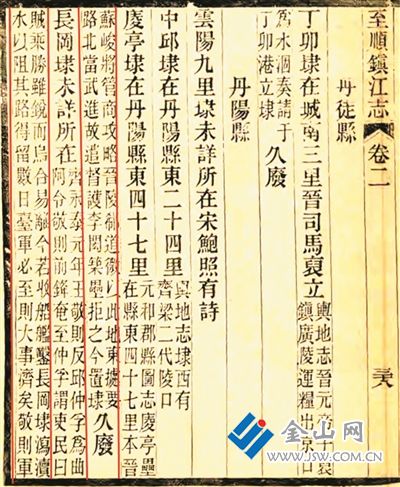 至順鎮江志 卷二
丹徒縣
丁卯埭在城南三里晉司馬裒立
輿地志晉元帝子裒
鎮廣陵運糧出京口
爲水涸奏請于
丁卯港立埭
久廢
丹陽縣
雲陽九里埭未詳所在宋鮑照有詩
中邱埭在丹陽縣東二十四里
輿地志埭西有
齊梁二代陵口
慶亭埭在丹陽縣東四十七里
元和郡縣圖志慶亭壘
在縣東四十七里本晉
蘇峻將管商攻略晉陵郗道徽以此地東據要
路北當武進故遣督護李閎築壘拒之今置埭
久廢
長岡埭未詳所在
齊永泰元年王敬則反邱仲孚爲曲
阿令敬則前鋒奄至仲孚謂吏民曰
賊乘勝雖銳而烏合易離今若收船艦鑿長岡埭瀉瀆
水以阻其路得留數日臺軍必至則大事濟矣敬則軍
金山网
WWW.JSW.COM.CN